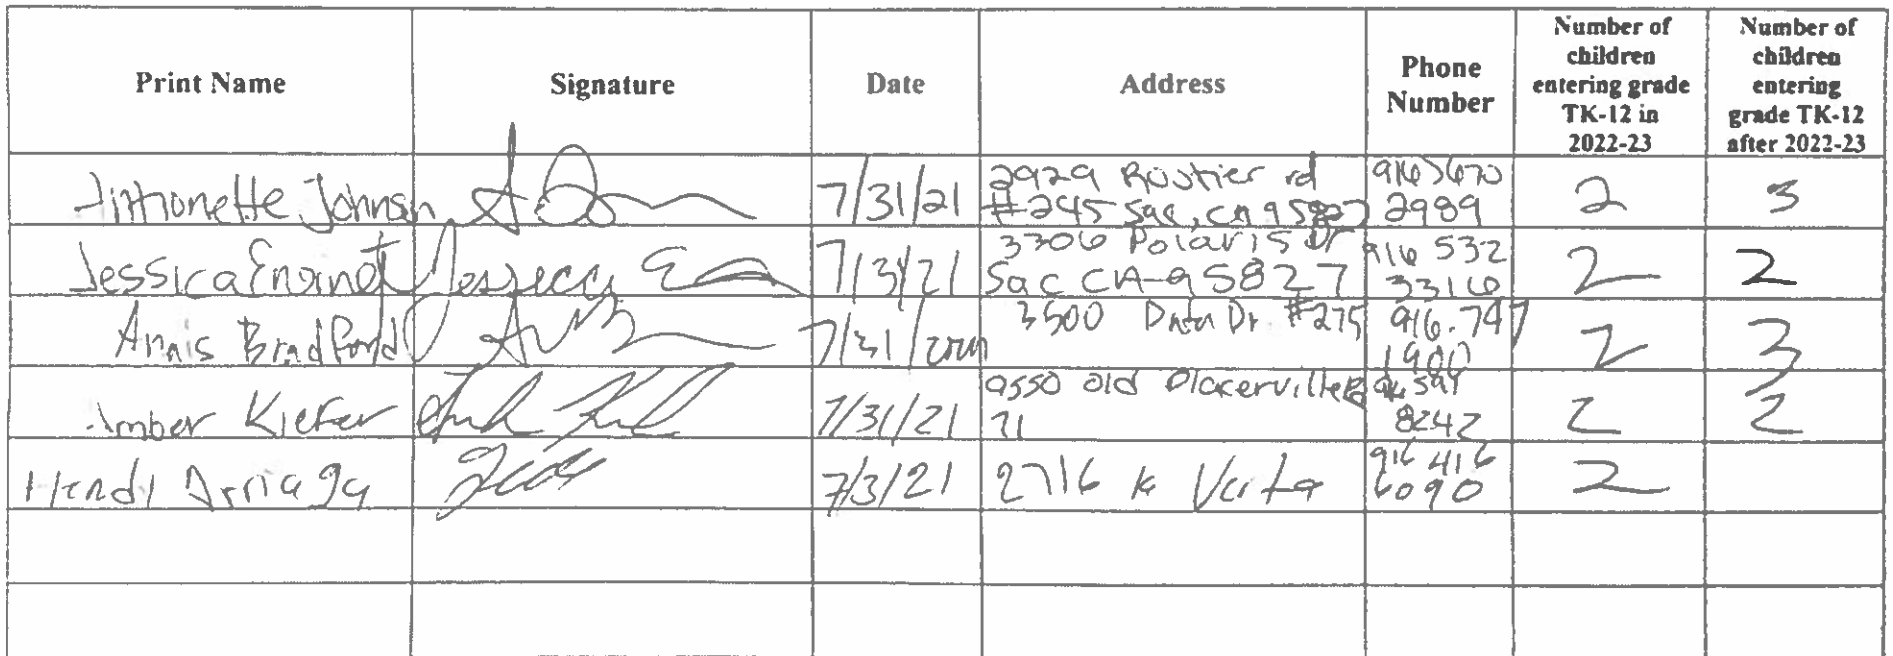 Print Name Signature Date Address Phone Number Number of children entering grade TK-12 in 2022-23 Number of children entering grade TK-12 after 2022-23
Antionette Johnson 7/31/21 2929 Routier rd #245 Sac, CA 95827 916) 670 2989 2 3
Jessica 7/31/21 3306 Polaris Dr Sac CA-95827 916 532 3316 2 2
Anais Bradford 7/31/ 3500 Data Dr #275 916.747 1900 2 3
Amber Kiefer 7/31/21 9550 old Placerville 71 8242 2 2
Arriaga 7/3/21 2716 916 416 6090 2